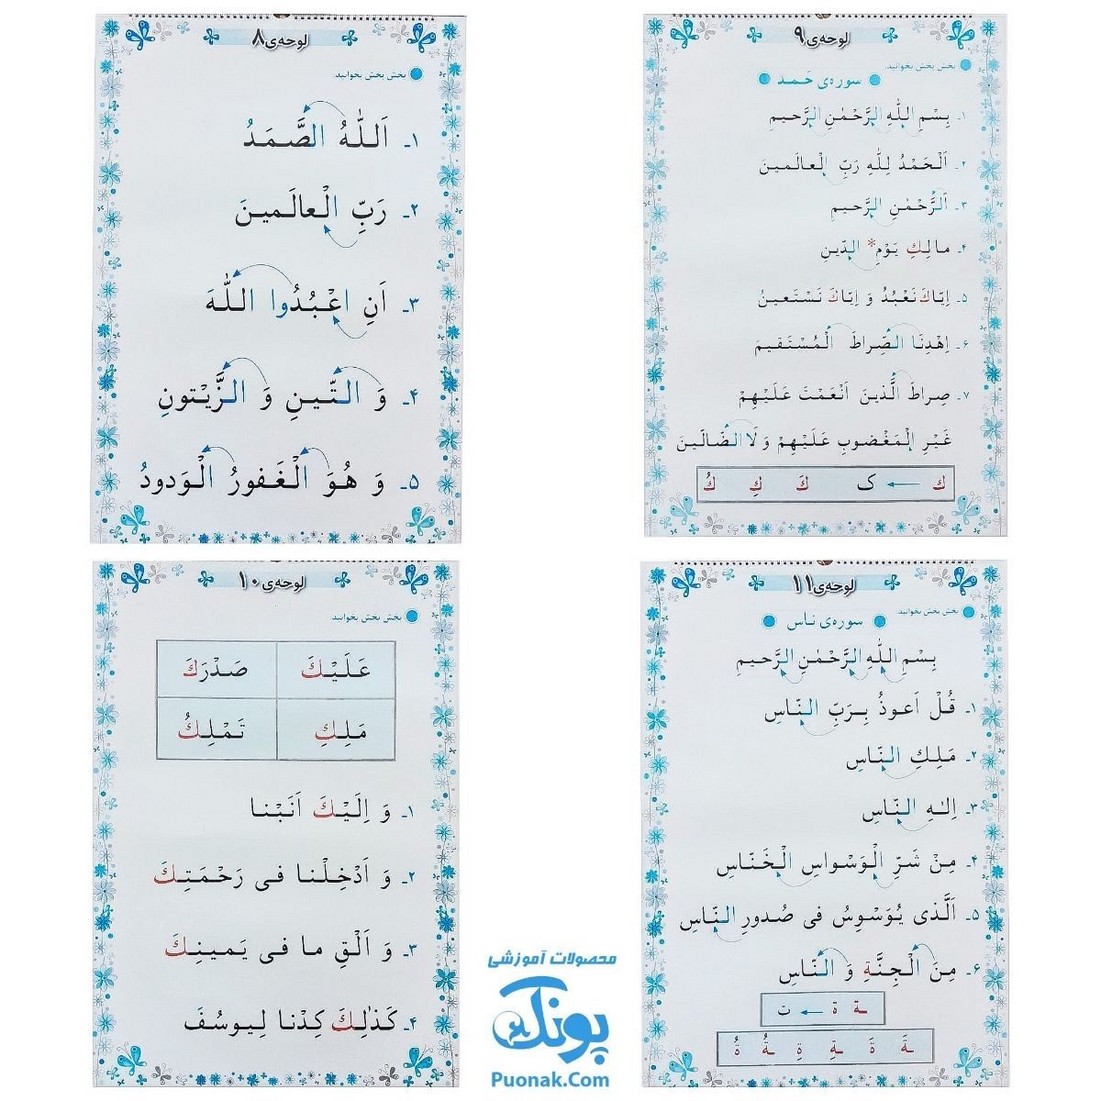 لوحه‌ی ۸
بخش بخش بخوانید
۱ـ اَللّٰهُ الصَّمَدُ
۲ـ رَبِّ الْعالَمینَ
۳ـ اَنِ اعْبُدُوا اللّٰهَ
۴ـ وَ التّینِ وَ الزَّیْتونِ
۵ـ وَ هُوَ الْغَفورُ الْوَدودُ
لوحه‌ی ۹
بخش بخش بخوانید
سوره‌ی حَمد
۱ـ بِسْمِ اللّٰهِ الرَّحْمٰنِ الرَّحیمِ
۲ـ اَلْحَمْدُ لِلّٰهِ رَبِّ الْعالَمینَ
۳ـ اَلرَّحْمٰنِ الرَّحیمِ
۴ـ مالِكِ یَوْمِ* الدّینِ
۵ـ اِیّاكَ نَعْبُدُ وَ اِیّاكَ نَسْتَعینُ
۶ـ اِهْدِنَا الصِّراطَ الْمُسْتَقیمَ
۷ـ صِراطَ الَّذینَ اَنْعَمْتَ عَلَیْهِمْ
غَیْرِ الْمَغْضوبِ عَلَیْهِمْ وَ لَا الضّالّینَ
ك ← ک كَ كِ كُ
لوحه‌ی ۱۰
بخش بخش بخوانید
عَلَیْكَ صَدْرَكَ
مَلِكِ تَمْلِكُ
۱ـ وَ اِلَیْكَ اَنَبْنا
۲ـ وَ اَدْخِلْنا فی رَحْمَتِكَ
۳ـ وَ اَلْقِ ما فی یَمینِكَ
۴ـ كَذٰلِكَ كِدْنا لِیوسُفَ
لوحه‌ی ۱۱
بخش بخش بخوانید
سوره‌ی ناس
بِسْمِ اللّٰهِ الرَّحْمٰنِ الرَّحیمِ
۱ـ قُلْ اَعوذُ بِرَبِّ النّاسِ
۲ـ مَلِكِ النّاسِ
۳ـ اِلٰهِ النّاسِ
۴ـ مِنْ شَرِّ الْوَسْواسِ الْخَنّاسِ
۵ـ اَلَّذی یُوَسْوِسُ فی صُدورِ النّاسِ
۶ـ مِنَ الْجِنَّةِ وَ النّاسِ
ـة ة ← ت
ـةَ ةَ ـةِ ةِ ـةُ ةُ
محصولات آموزشی
پونک
Puonak.Com